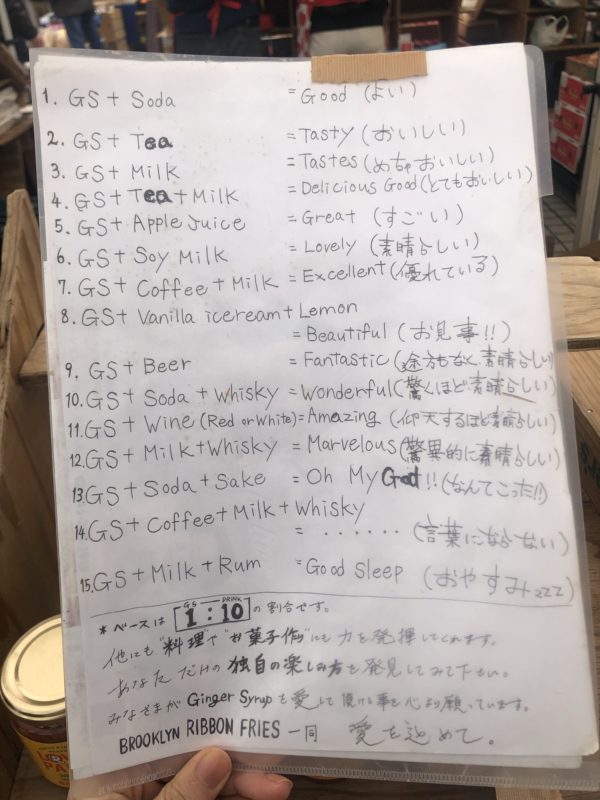 1. GS + Soda = Good (よい)
2. GS + Tea = Tasty (おいしい)
3. GS + Milk = Tastes (めちゃおいしい)
4. GS + Tea + Milk = Delicious Good (とてもおいしい)
5. GS + Apple Juice = Great (すごい)
6. GS + Soy Milk = Lovely (素晴らしい)
7. GS + Coffee + Milk = Excellent (優れている)
8. GS + Vanilla icecream + Lemon
= Beautiful (お見事!!)
9. GS + Beer = Fantastic (途方もなく素晴らしい)
10. GS + Soda + Whisky = Wonderful (驚くほど素晴らしい)
11. GS + Wine (Red or White) = Amazing (仰天するほど素晴らしい)
12. GS + Milk + Whisky = Marvelous (驚異的に素晴らしい)
13. GS + Soda + Sake = Oh My God!! (なんてこった!!)
14. GS + Coffee + Milk + Whisky
= ...... (言葉にならない)
15. GS + Milk + Rum = Good Sleep (おやすみzzz)
* ベースは [GS 1 : DRINK 10] の割合です。
他にも"料理で"お菓子作り"にも力を発揮してくれます。
あなただけの独自の楽しみ方を発見してみて下さい。
みなさまが Ginger Syrup を愛して頂ける事を心より願っています。
BROOKLYN RIBBON FRIES 一同 愛を込めて。